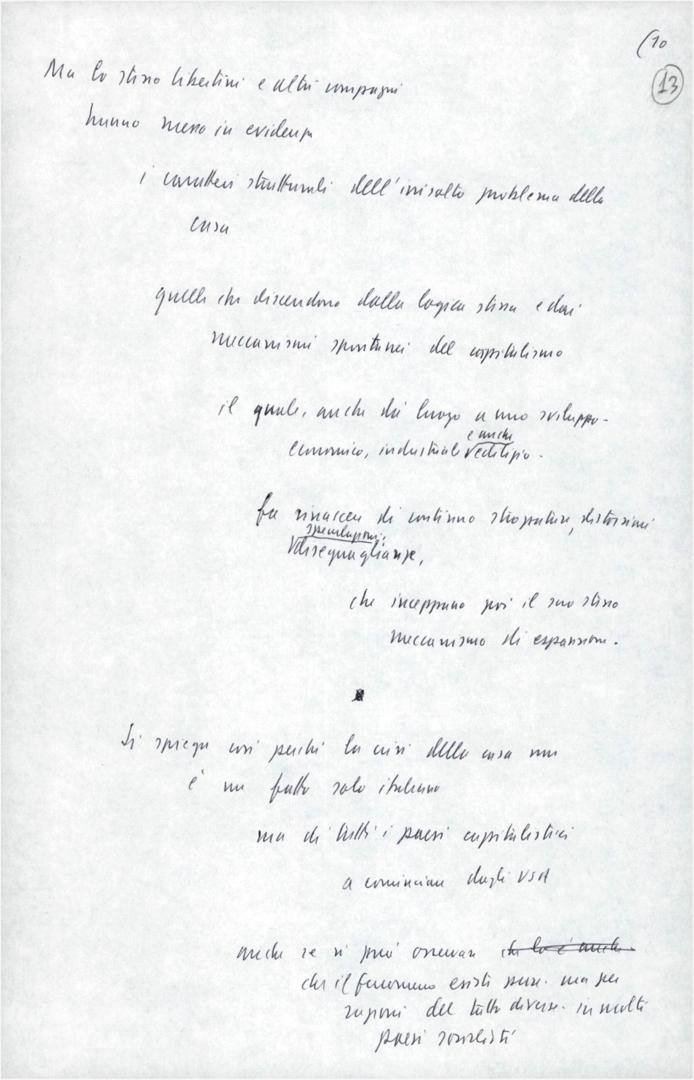 (10
13
Ma lo stesso Libertini e altri compagni
hanno messo in evidenza
i caratteri strutturali dell'irrisolto problema della
casa
quelli che discendono dalla logica stessa e dai
meccanismi spontanei del capitalismo
il quale, anche dà luogo a uno sviluppo-
economico, industriale
e anche
edilizio-
fa rinascere di continuo strozzature, distorsioni
speculazioni,
disuguaglianze,
che inceppano poi il suo stesso
meccanismo di espansione.
Si spiega così perché la crisi della casa non
è un fatto solo italiano
ma di tutti i paesi capitalistici
a cominciare dagli USA
anche se si può osservare che lo è anche
che il fenomeno esiste pure- ma per
ragioni del tutto diverse- in molti
paesi socialisti